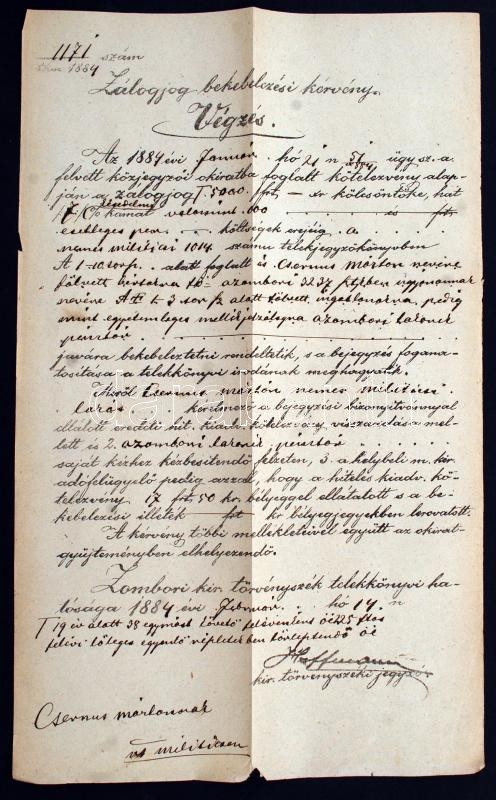 1171 szám
1884
Zálogjog bekebelezési kérvény.
Végzés.
Az 1884 évi Január hó 21 n 51 ügysz. a.
felvett közjegyzői okiratba foglalt kötelezvény alap-
ján a zálogjog 5000 frt kölcsöntőke, hat
% kamat valamint és frt
esetleges per költségek erejéig a
militicsi 1014 számu telekjegyzőkönyvben
A 1-10 sorsz. alatt foglalt és Csernus Márton nevére
a zombori 3237 ügyanannak
nevére A I 1-3 sorsz alatt felvett ingatlanokra, pedig
mint egyetemleges mellékjelzálogra a zombori
javára bekebeleztetni rendeltetik, s a bejegyzés fogana-
tositása a telekkönyvi irodának meghagyatik.
Miről Csernus Márton nemes militicsi
lakos kérelmező a bejegyzési bizonyitvánnyal
ellátott eredeti hit. kiadv. kötelezvény visszaadása mel-
lett és 2. a zombori
saját kézhez kézbesitendő felzeten, 3. a helybeli m. kir.
adófelügyelő pedig azzal, hogy a hiteles kiadv. kö-
telezvény 17 frt. 50 kr bélyeggel ellátatott s a be-
kebelezési illeték frt kr bélyegjegyekben lerovatott.
A kérvény többi mellékleteivel együtt az okirat-
gyüjteményben elhelyezendő.
Zombori kir. törvényszék telekkönyvi ha-
tósága 1884 évi Február hó 14 n
19 év alatt 38 egymást követő félévenkint 225 ftos
félévi egyenlő részletekben törlesztendő
Hoffmann
kir. törvényszéki jegyző
Csernus Mártonnak
militicsen